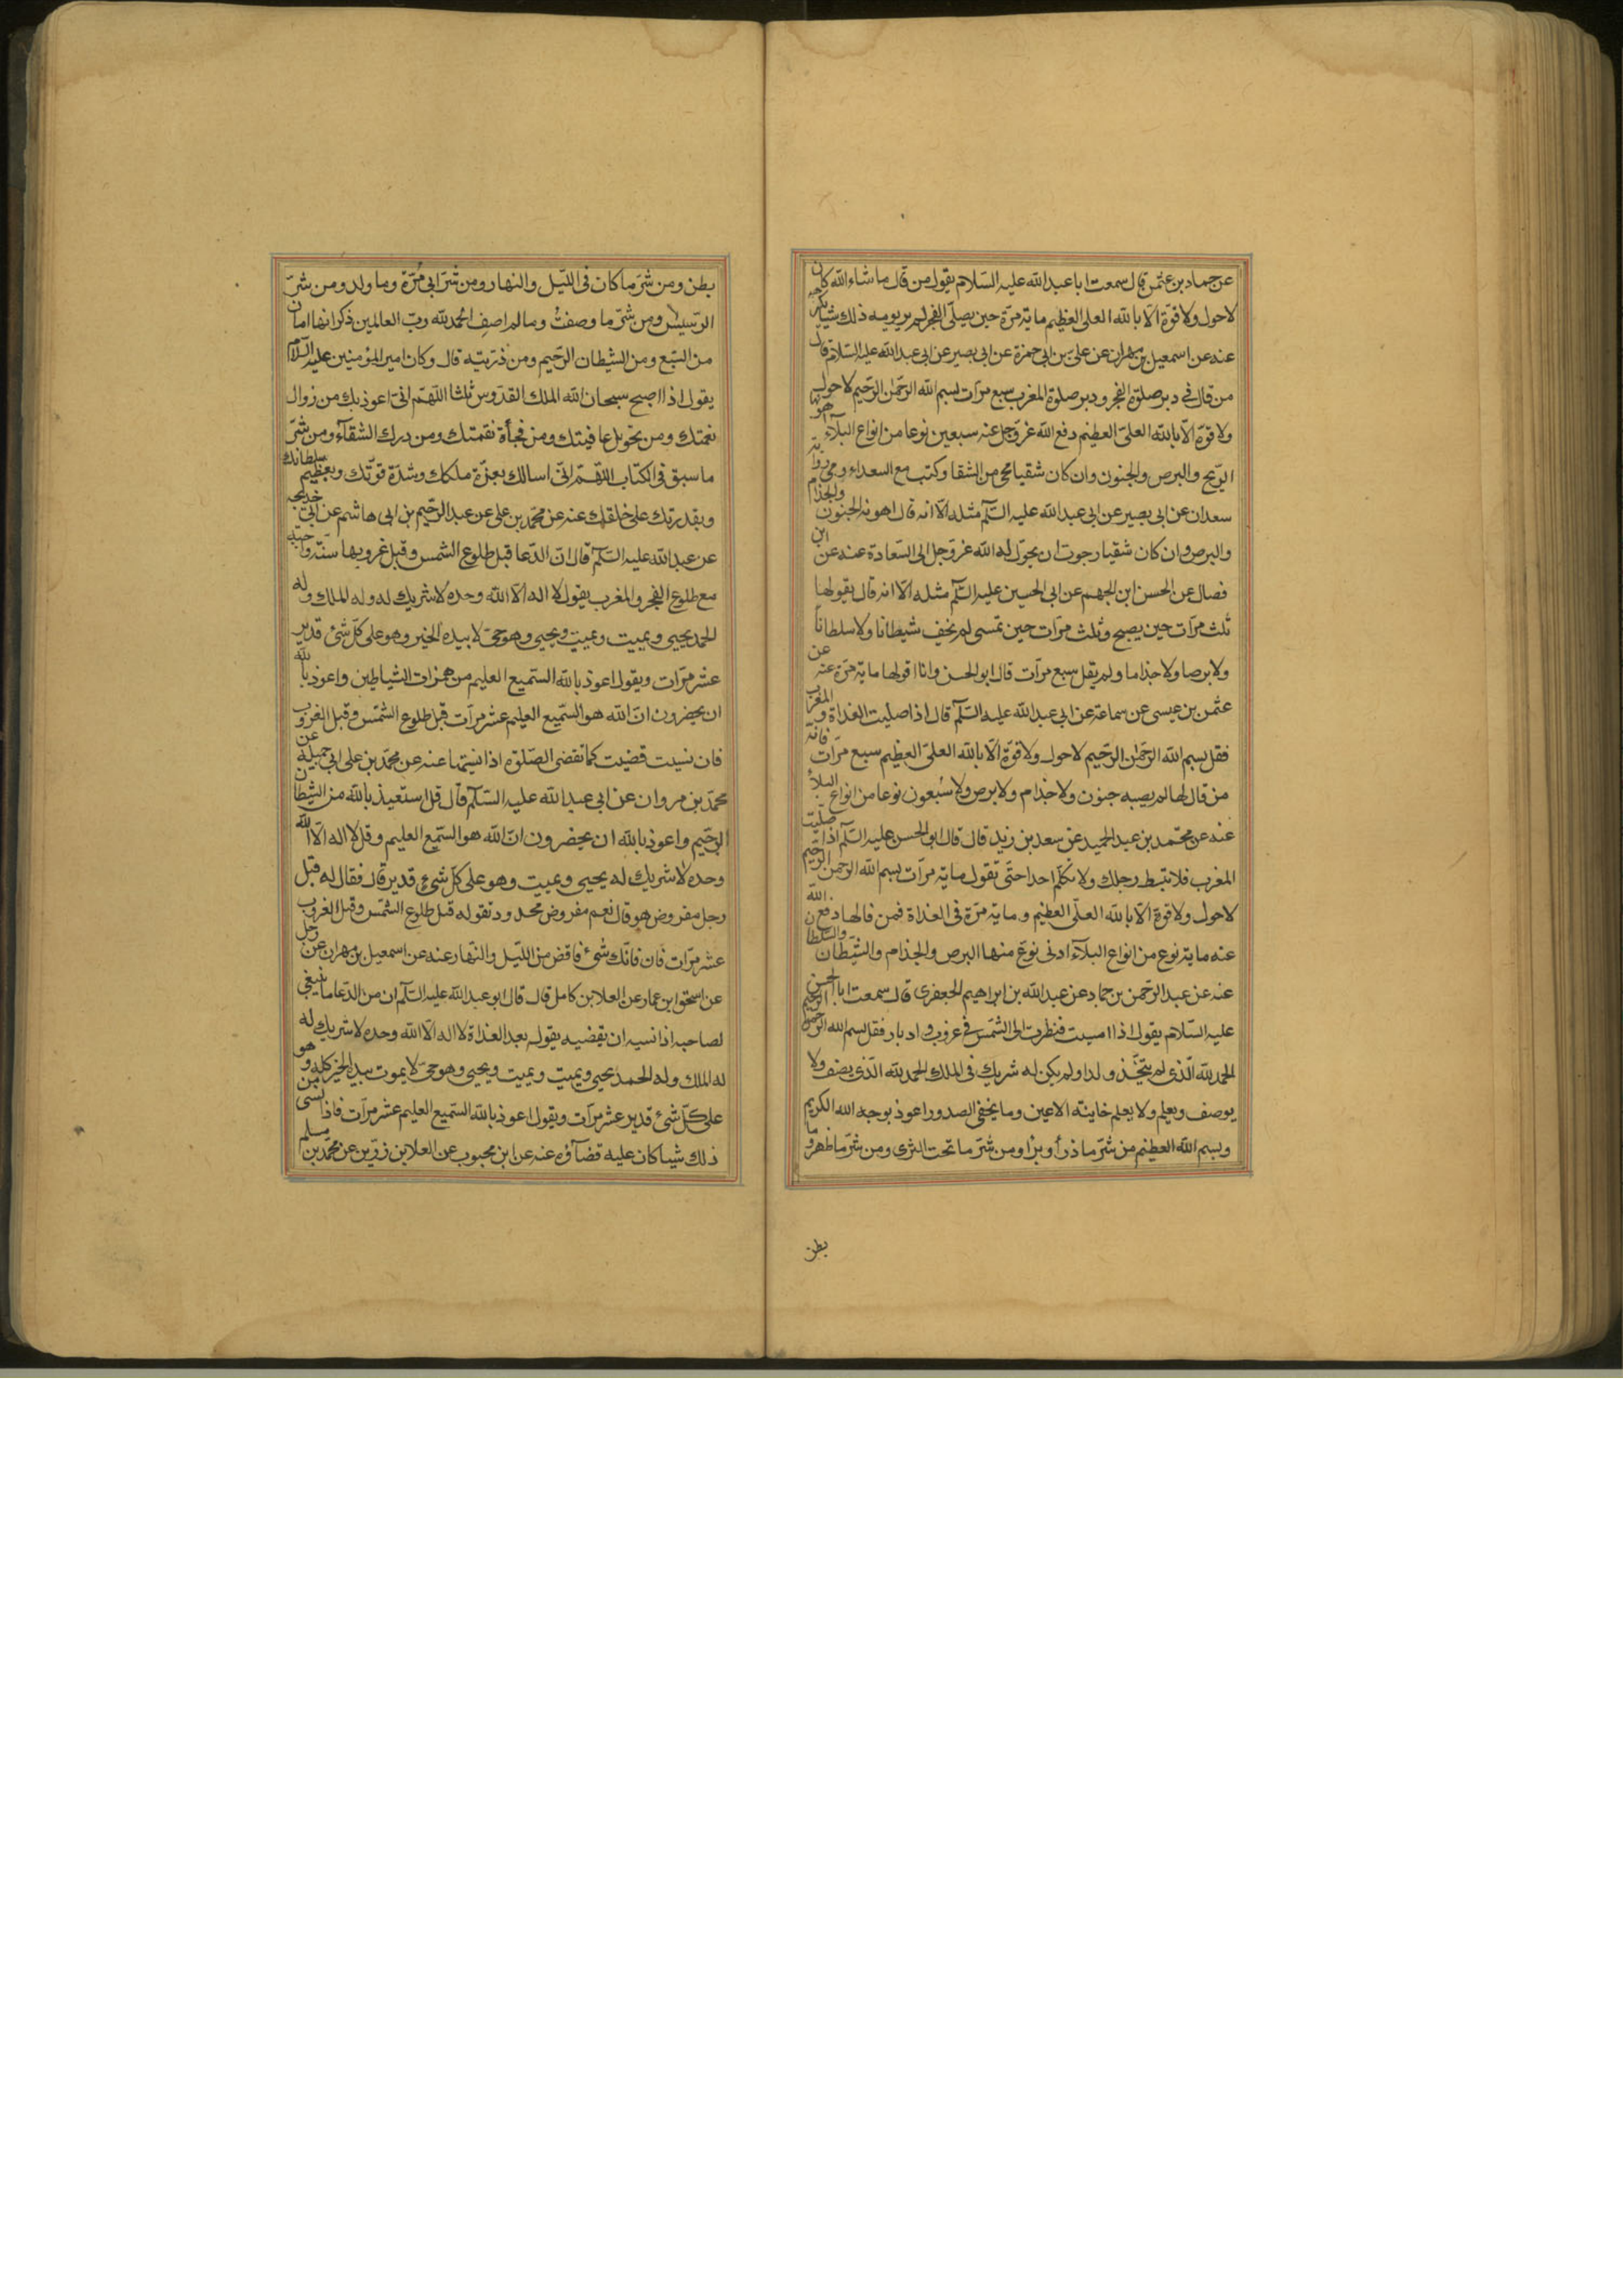 عن حماد بن عثمن قال سمعت ابا عبد الله عليه السلام يقول من قال ما شاء الله كان
لا حول ولا قوة الا بالله العلى العظيم ماية مرة حين يصلى الفجر لم ير يومه ذلك شيأ يكرهه
عنه عن اسمعيل بن مهران عن على بن ابى حمزة عن ابى بصير عن ابى عبد الله عليه السلام قال
من قال فى دبر صلوة الفجر ودبر صلوة المغرب سبع مرات بسم الله الرحمن الرحيم لا حول
ولا قوة الا بالله العلى العظيم دفع الله عز وجل عنه سبعين نوعا من انواع البلآء اهونها
الريح والبرص والجنون وان كان شقيا محى من الشقا وكتب مع السعداء وفى رواية
سعدان عن ابى بصير عن ابى عبد الله عليه السلم مثله الا انه قال اهونه الجنون والجذام
والبرص وان كان شقيا رجوت ان يحوله الله عز وجل الى السعادة عنه عن ابن
فضال عن الحسن ابن الجهم عن ابى الحسين عليه السلم مثله الا انه قال يقولها
ثلث مرات حين يصبح وثلث مرات حين تمسى لم يخف شيطانا ولا سلطانا
ولا برصا ولا جذاما ولم يقل سبع مرات قال ابو الحسن وانا اقولها ماية مرة عنه عن
عثمن بن عيسى عن سماعة عن ابى عبد الله عليه السلم قال اذا صليت الغداة والمغرب
فقل بسم الله الرحمن الرحيم لا حول ولا قوة الا بالله العلى العظيم سبع مرات فانه
من قالها لم يصبه جنون ولا جذام ولا برص ولا سبعون نوعا من انواع البلآء
عنه عن محمد بن عبد الحميد عن سعد بن زيد قال قال ابو الحسن عليه السلم اذا صليت
المغرب فلا تبسط رجلك ولا تكلم احدا حتى تقول ماية مرات بسم الله الرحمن الرحيم
لا حول ولا قوة الا بالله العلى العظيم وماية مرة فى الغداة فمن قالها دفع الله
عنه ماية نوع من انواع البلآء ادنى نوع منها البرص والجذام والشيطان والسلطان
عنه عن عبد الرحمن بن حماد عن عبد الله بن ابراهيم الجعفرى قال سمعت ابا الحسن
عليه السلام يقول اذا امسيت فنظرت الى الشمس فى غروب وادبار فقل بسم الله الرحمن الرحيم
الحمد لله الذى لم يتخذ ولدا ولم يكن له شريك فى الملك الحمد لله الذى يصف ولا
يوصف ويعلم ولا يعلم خاينة الاعين وما يخفى الصدور اعوذ بوجه الله الكريم
وبسم الله العظيم من شر ما ذرأ وبرأ ومن شر ما تحت الثرى ومن شر ما ظهر وما
بطن
بطن ومن شر ما كان فى الليل والنهار ومن شر ابى مرة وما ولد ومن شر
الرسيس ومن شر ما وصفت وما لم اصف الحمد لله رب العالمين ذكر انها امان
من السبع ومن الشيطان الرجيم ومن ذريته قال وكان امير المؤمنين عليه السلام
يقول اذا اصبح سبحان الله الملك القدوس ثلثا اللهم انى اعوذ بك من زوال
نعمتك ومن تحويل عافيتك ومن فجأة نقمتك ومن درك الشقآء ومن شر
ما سبق فى الكتاب اللهم انى اسالك بعزة ملكك وشدة قوتك وبعظيم سلطانك
وبقدرتك على خلقك عنه عن محمد بن على عن عبد الرحيم بن ابى هاشم عن ابى خديجه
عن عبد الله عليه السلم قال ان الدعا قبل طلوع الشمس وقبل غروبها سنة واجبة
مع طلوع الفجر والمغرب يقول لا اله الا الله وحده لا شريك له وله الملك وله
الحمد يحيى ويميت ويميت ويحيى وهو حى لا بيده الخير وهو على كل شئ قدير
عشر مرات ويقول اعوذ بالله السميع العليم من همزات الشياطين واعوذ بالله
ان يحضرون ان الله هو السميع العليم عشر مرات قبل طلوع الشمس وقبل الغروب
فان نسيت قضيت كما تقضى الصلوة اذا نسيتها عنه عن محمد بن على ابى جميلة عن
محمد بن مروان عن ابى عبد الله عليه السلم قال قل استعيذ بالله من الشيطان
الرجيم واعوذ بالله ان يحضرون ان الله هو السميع العليم وقل لا اله الا الله
وحده لا شريك له يحيى ويميت وهو على كل شئ قدير قال فقال له قبل
رجل مفروض هو قال نعم مفروض محدود تقوله قبل طلوع الشمس وقبل الغروب
عشر مرات فان فاتك شئ فاقض من الليل والنهار عنه عن اسمعيل بن مهران عن رجل
عن اسحق ابن عمار عن العلا بن كامل قال قال ابو عبد الله عليه السلم ان من الدعا ما ينبغى
لصاحبه اذا نسيه ان يقضيه يقول بعد الغداة لا اله الا الله وحده لا شريك له
له الملك وله الحمد يحيى ويميت ويميت ويحيى وهو حى لا يموت بيده الخير كله وهو
على كل شئ قدير عشر مرات ويقول اعوذ بالله السميع العليم عشر مرات فاذا نسى من
ذلك شيا كان عليه قضآؤه عنه عن ابن محبوب عن العلا بن رزين عن محمد بن مسلم